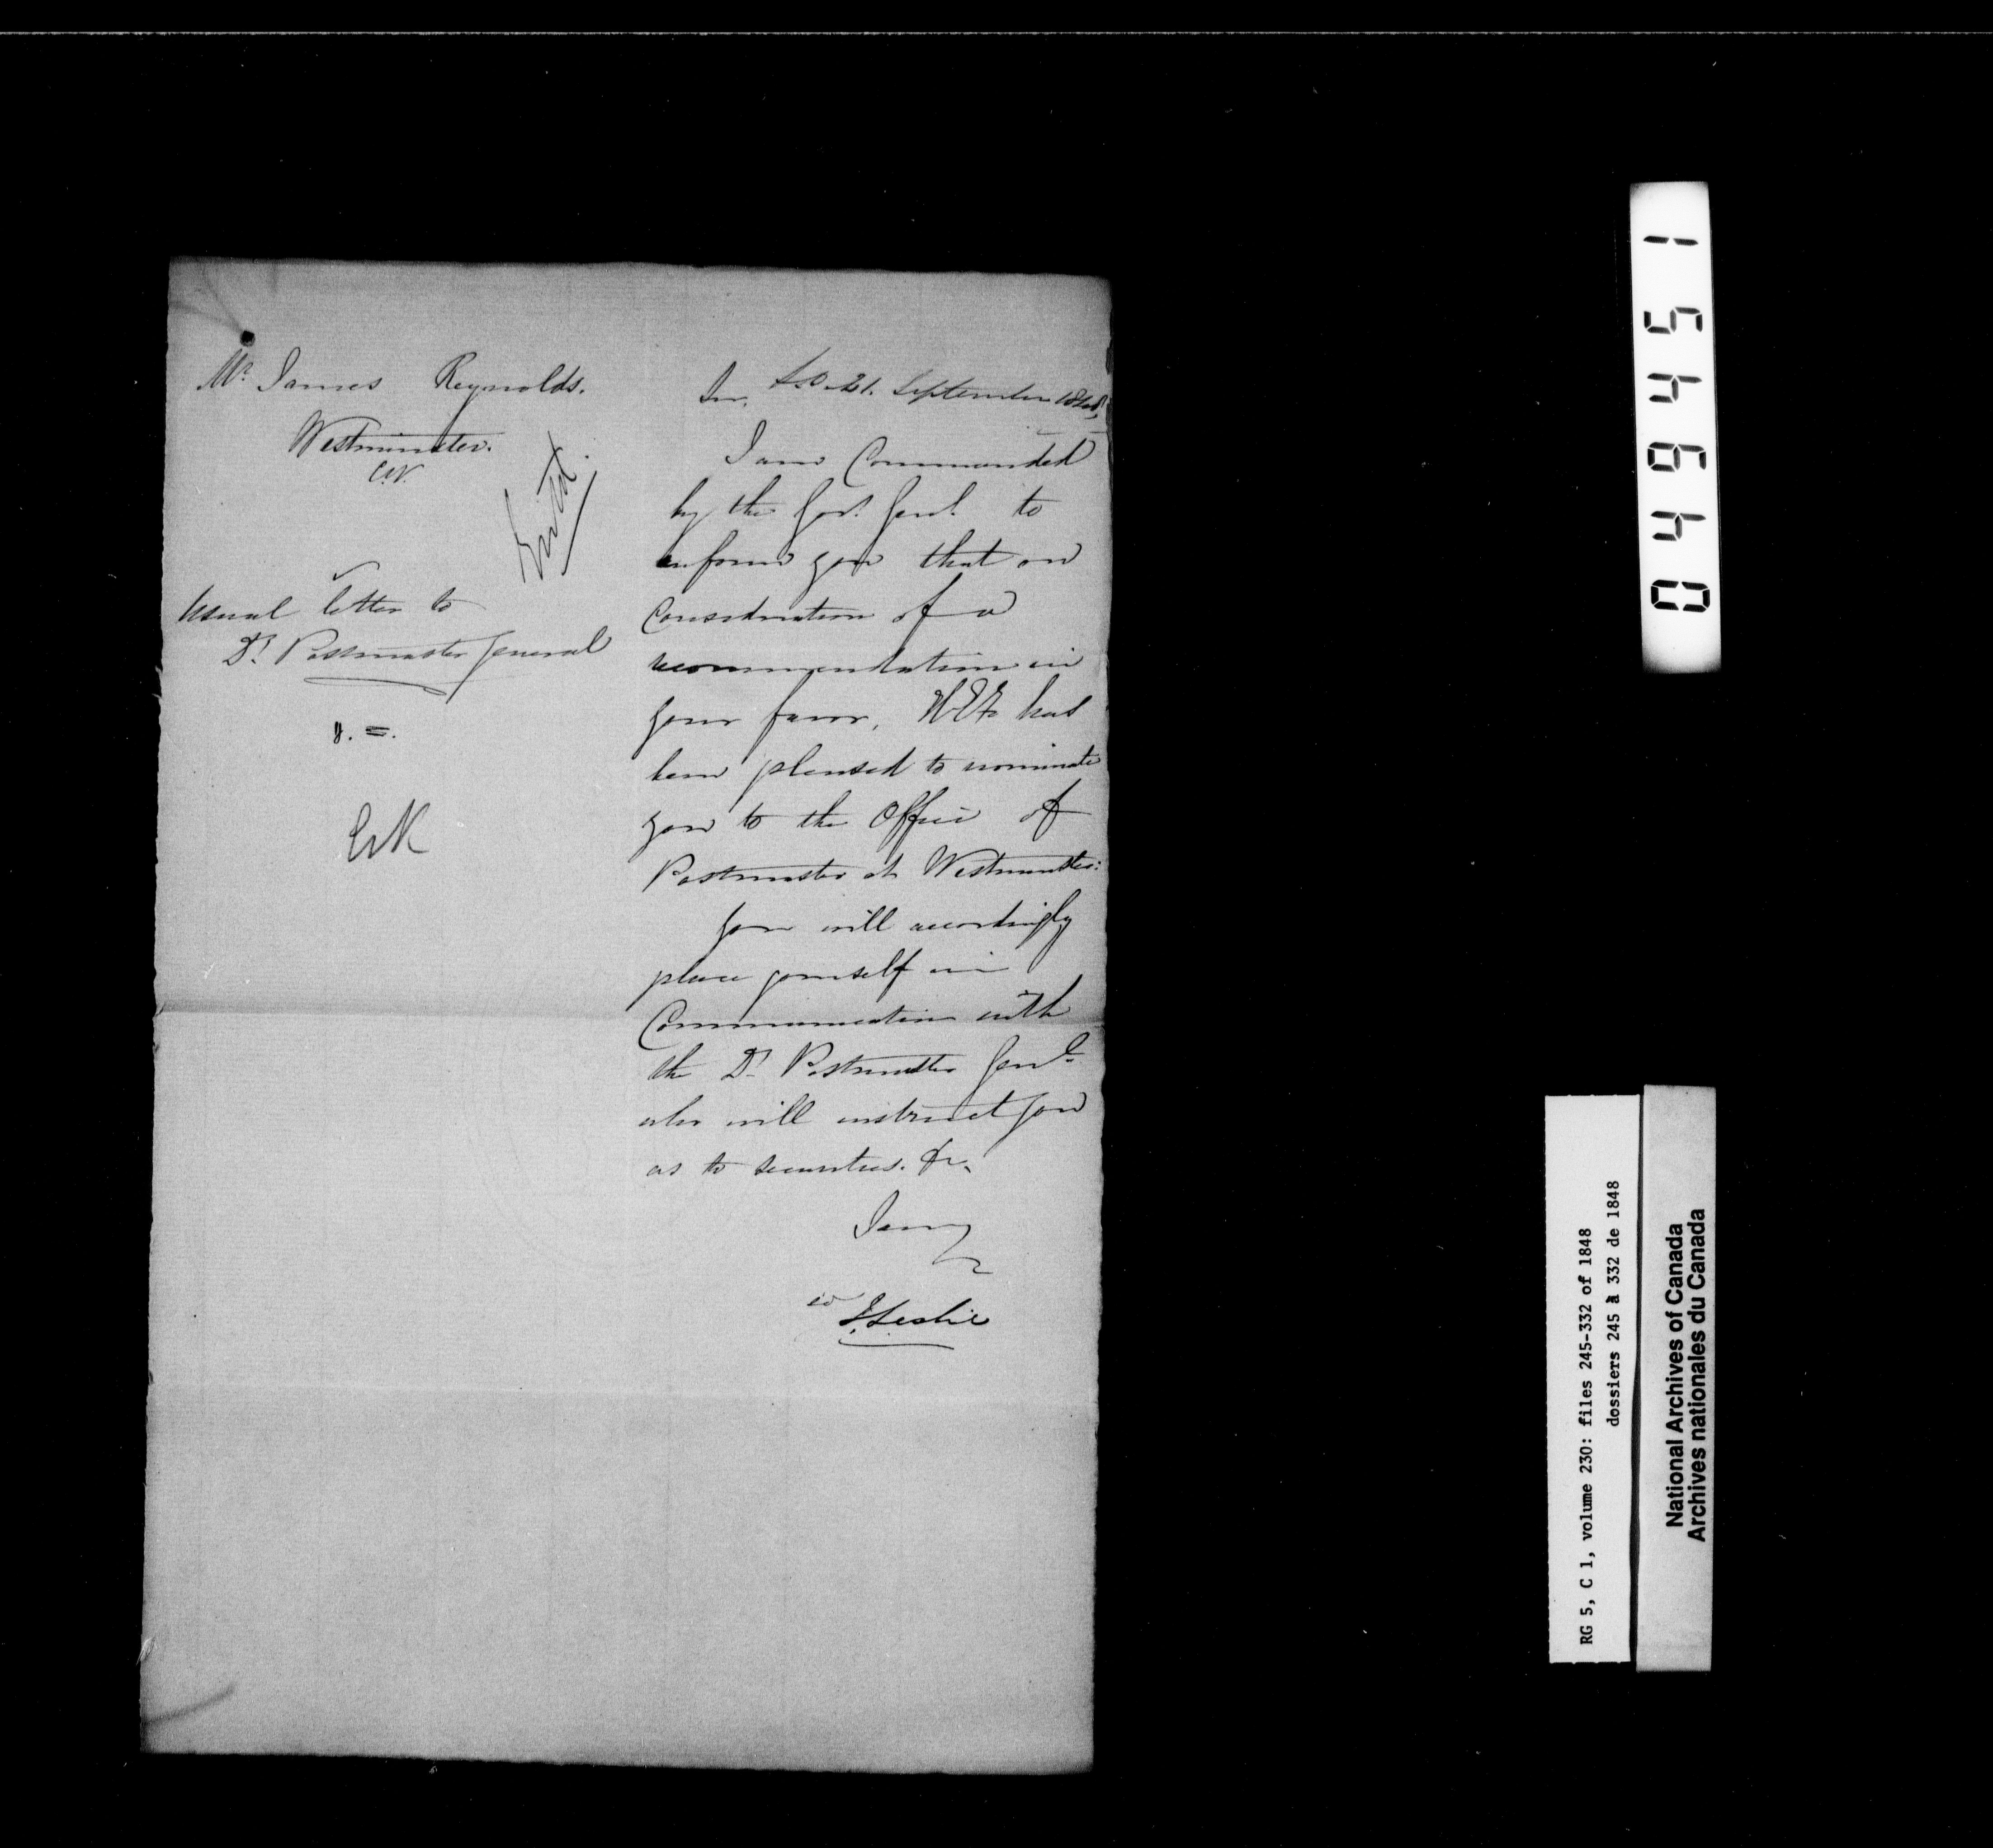 Mr. James Reynolds.
Westminster.
C.W.
Entd.
Usual letter to
Dy. Postmaster General
S.O. 21. September 1848,
Sir,
I am Commanded
by the Govr. Genl. to
inform you that on
Consideration of a
recommendation in
your favor, H.E. has
been pleased to nominate
you to the Office of
Postmaster at Westminster:
You will accordingly
place yourself in
Communication with
the Dy. Postmaster Genl.
who will instruct you
as to securities. &c.
I am
J. Leslie
044951
RG 5, C 1, volume 230: files 245-332 of 1848
dossiers 245 à 332 de 1848
National Archives of Canada
Archives nationales du Canada